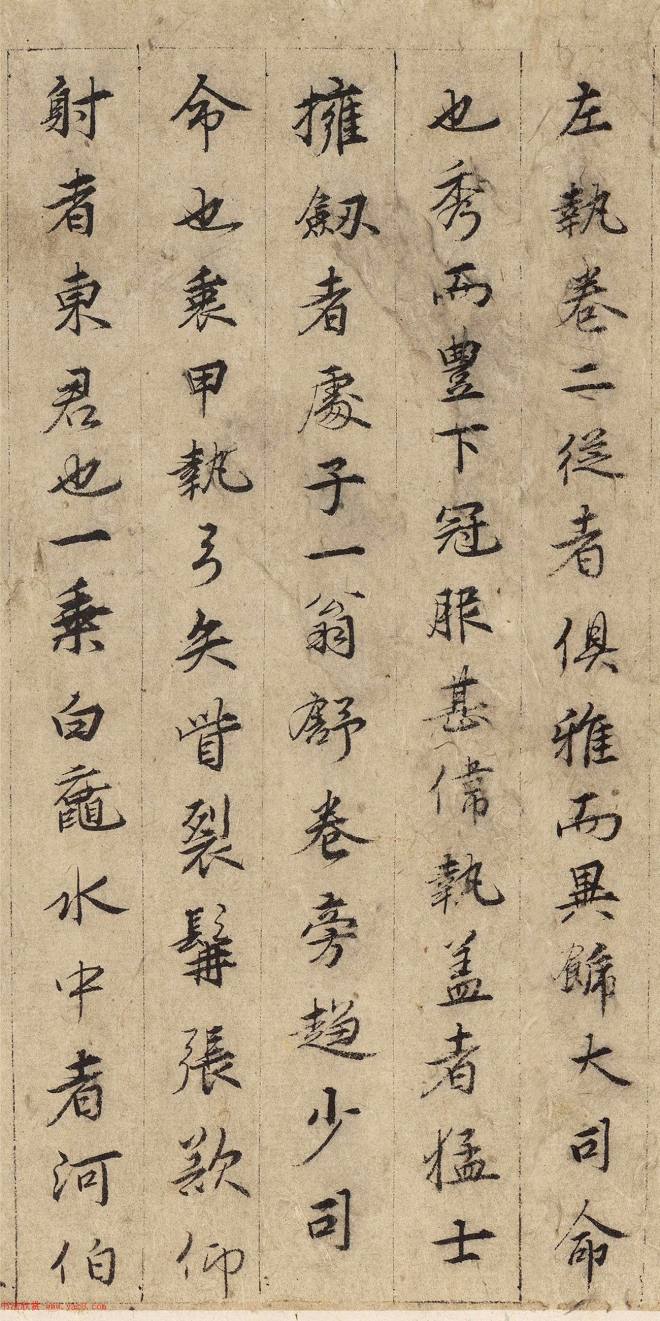 左執卷二從者俱雅而異飾大司命
也秀而豐下冠服甚偉執盖者猛士
擁劔者處子一翁舒卷旁趨少司
命也裹甲執弓矢眥裂髯張欻仰
射者東君也一乗白黿水中者河伯
书法欣赏 www.yac8.com